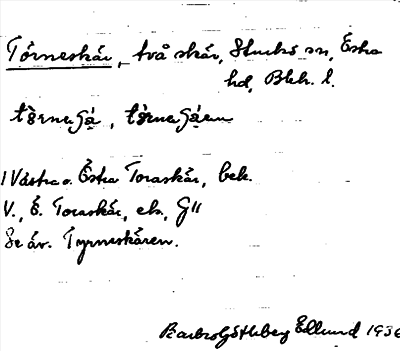 Törneskär, två skär, Sturkö sn, Östra
hd, Blek. l.
1 Västra o. Östra Toraskär, bek.
V., Ö. Toraskär, ek, G11
Se äv. Tyrneskären.
Barbro Götlberg Edlund 1936